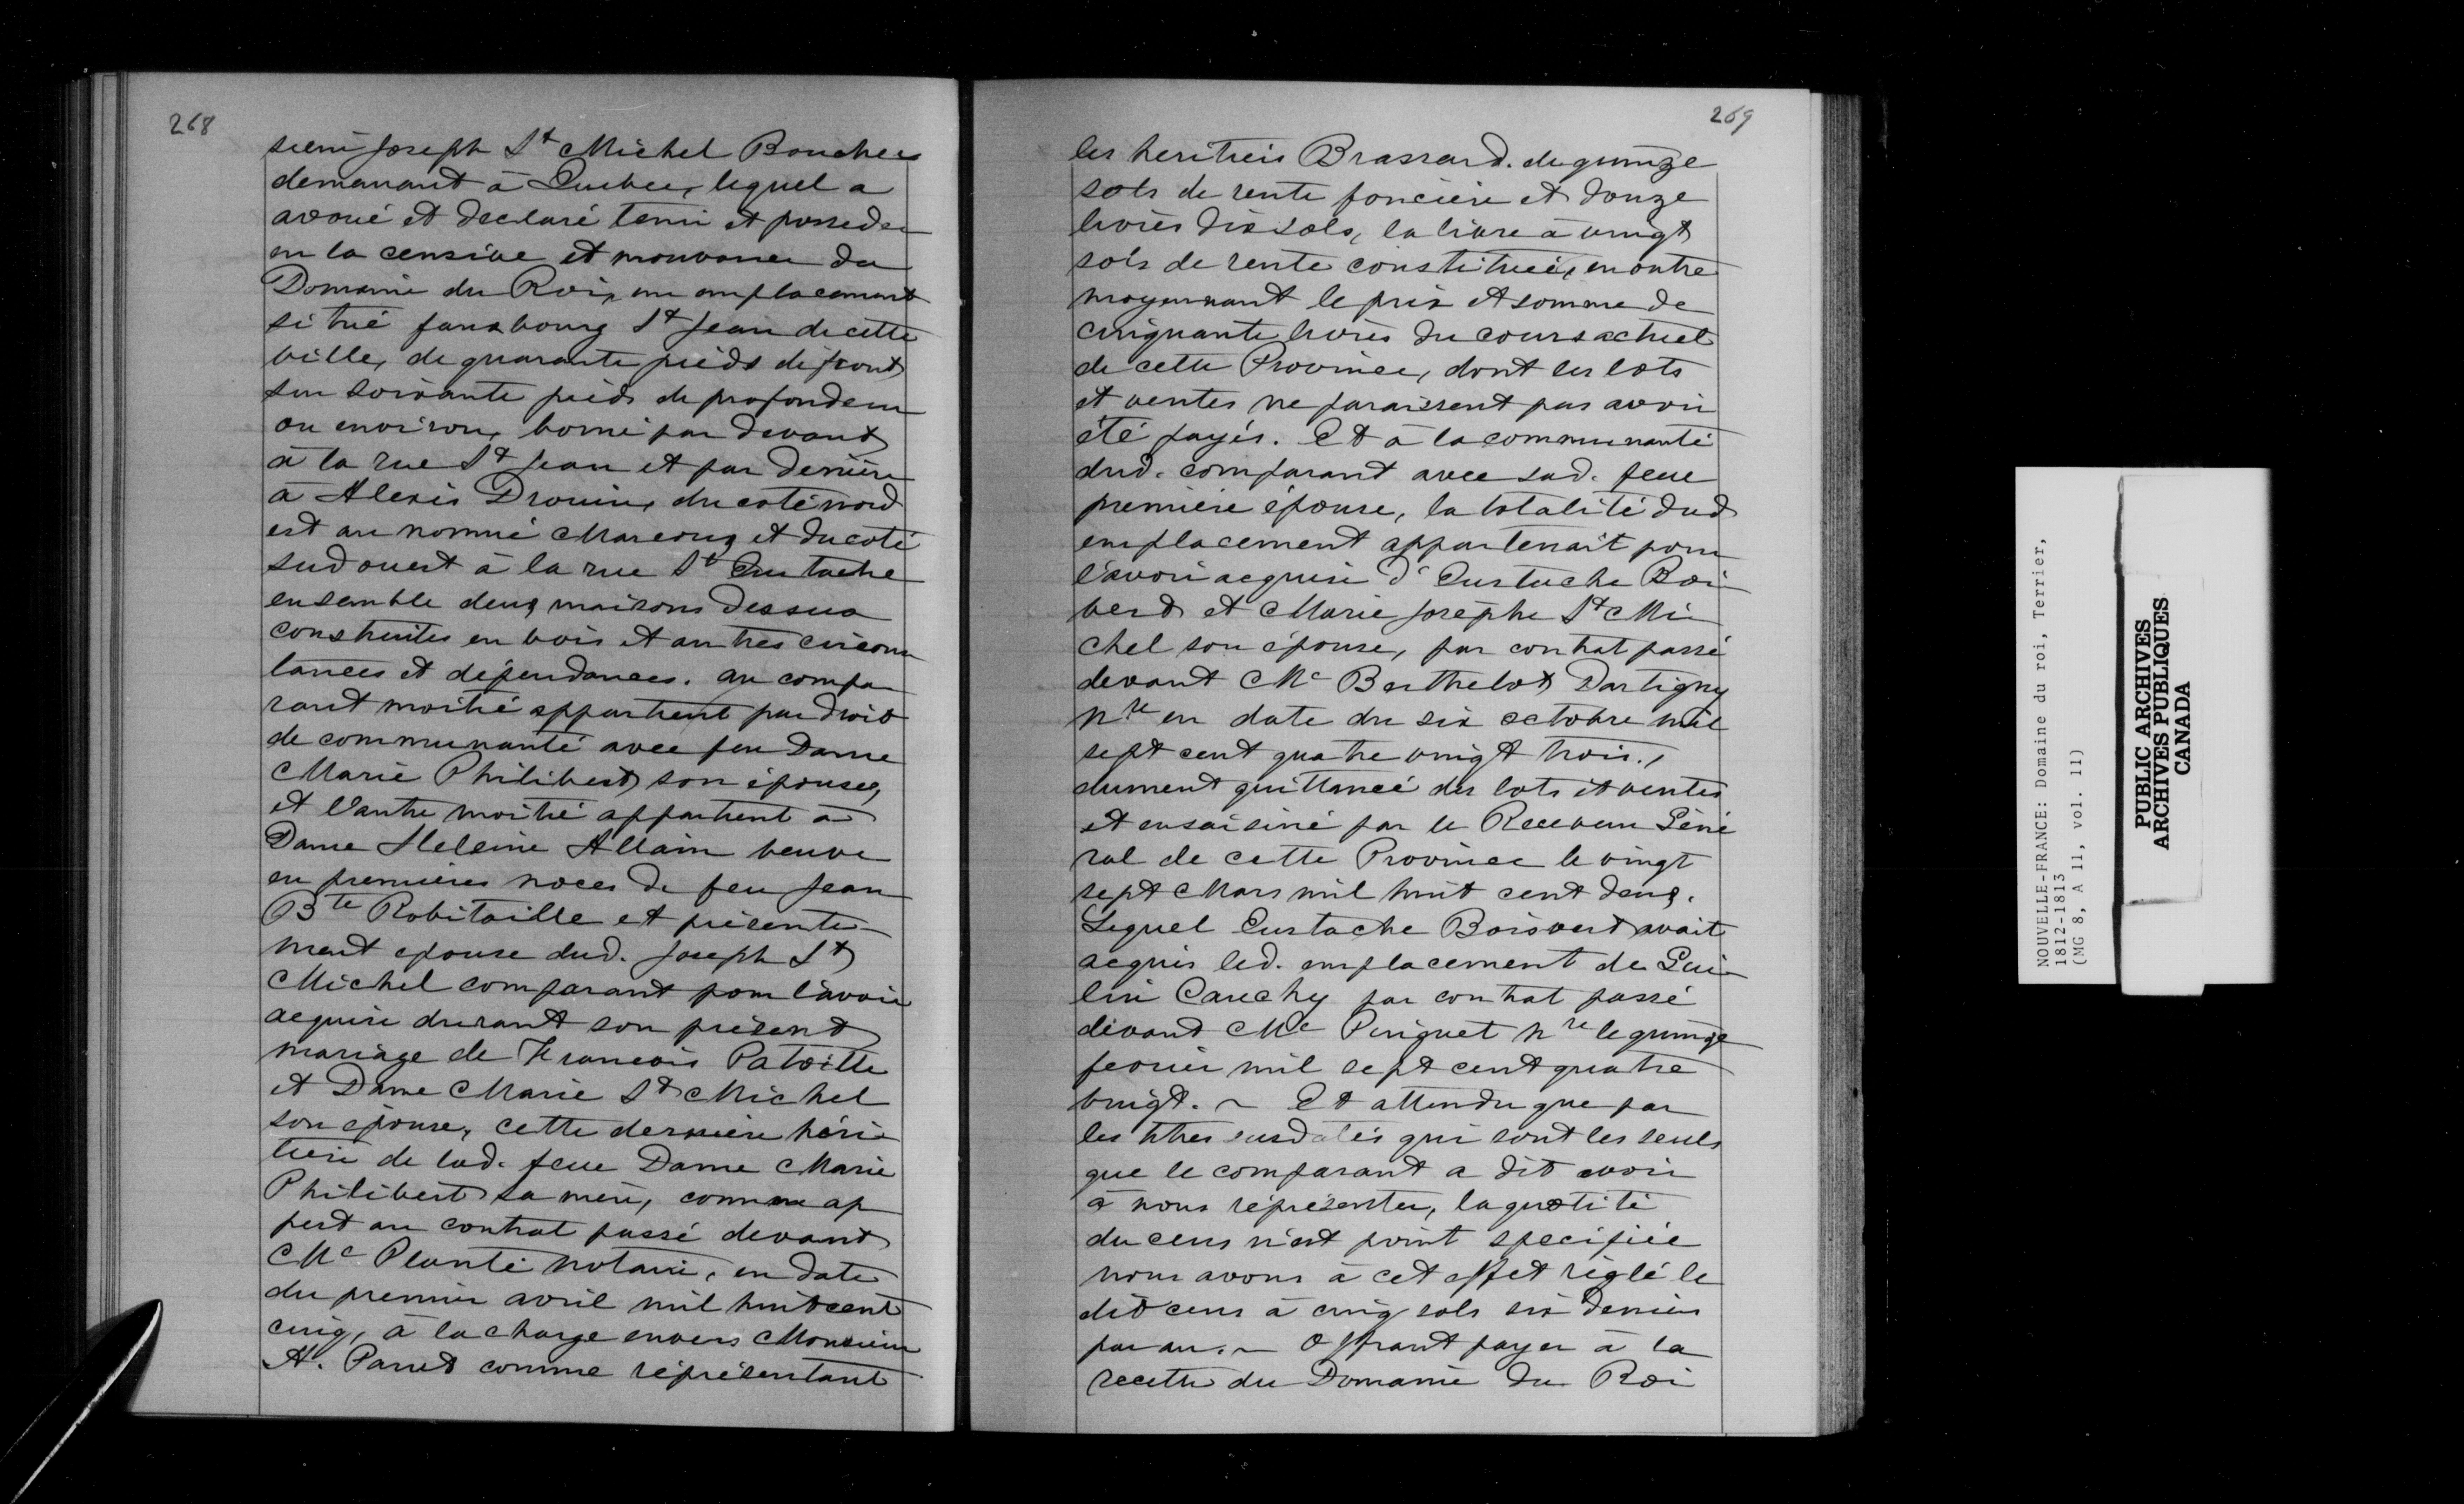 268
sieur Joseph St Michel Boucher
demeurant à Quebec, lequel a
avoué et declaré tenir et posseder
en la censive et mouvance du
Domaine du Roi, un emplacement
situé fauxbourg St Jean de cette
ville, de quarante pieds de front
sur soixante pieds de profondeur
ou environ, borné par devant
à la rue St Jean et par derrière
à Alexis Drouin, du coté nord
est au nommé Marcoux et du coté
sud ouest à la rue St Eustache
ensemble deux maisons dessus
construites en bois et autres circons
tances et dépendances. au compa
rant moitié appartient par droit
de communauté avec feu Dame
Marie Philibert son épouse,
et l'autre moitié appartient à
Dame Heleine Allain veuve
en premières noces de feu Jean
Bte Robitaille et présente
ment epouse dud. Joseph St
Michel comparant pour l'avoir
acquise durant son présent
mariage de Francois Patoille
et Dame Marie St Michel
son epouse, cette dernière héri
tière de lad. feue Dame Marie
Philibert sa mère, comme ap
pert au contrat passé devant
Me Planté notaire, en date
du premier avril mil huit cent
cinq, à la charge envers Monsieur
A. Panet comme réprésentant
269
les heritiers Brassard. de quinze
sols de rente foncière et douze
livres dix sols, la livre à vingt
sols de rente constituée, en outre
moyennant le prix et somme de
cinquante livres du cours actuel
de cette Province, dont les lots
et ventes ne paraissent pas avoir
été payés. Et à la communauté
dud. comparant avec sad. feue
première épouse, la totalité dud
emplacement appartenait pour
l'avoir acquise d'Eustache Boi
vert et Marie Josephe St Mi
chel son épouse, par contrat passé
devant Me Berthelot Dartigny
Nre en date du six octobre mil
sept cent quatre vingt trois.,
dument quittancé des lots et ventes
et ensaisiné par le Receveur Géné
ral de cette Province le vingt
sept Mars mil huit cent deux.
Lequel Eustache Boisvert avait
acquis led. emplacement de Gui
lin Cauchy par contrat passé
devant Me Pinguet Nre le quinze
fevrier mil sept cent quatre
vingt. ~ Et attendu que par
les titres susdatés qui sont les seuls
que le comparant a dit avoir
à nous réprésenter, la quotité
du cens n'est point specifiée
nous avons à cet effet réglé le
dit cens à cinq sols six deniers
par an. ~ Offrant payer à la
recette du Domaine du Roi
NOUVELLE-FRANCE: Domaine du roi, Terrier,
1812-1813
(MG 8, A 11, vol. 11)
PUBLIC ARCHIVES
ARCHIVES PUBLIQUES
CANADA